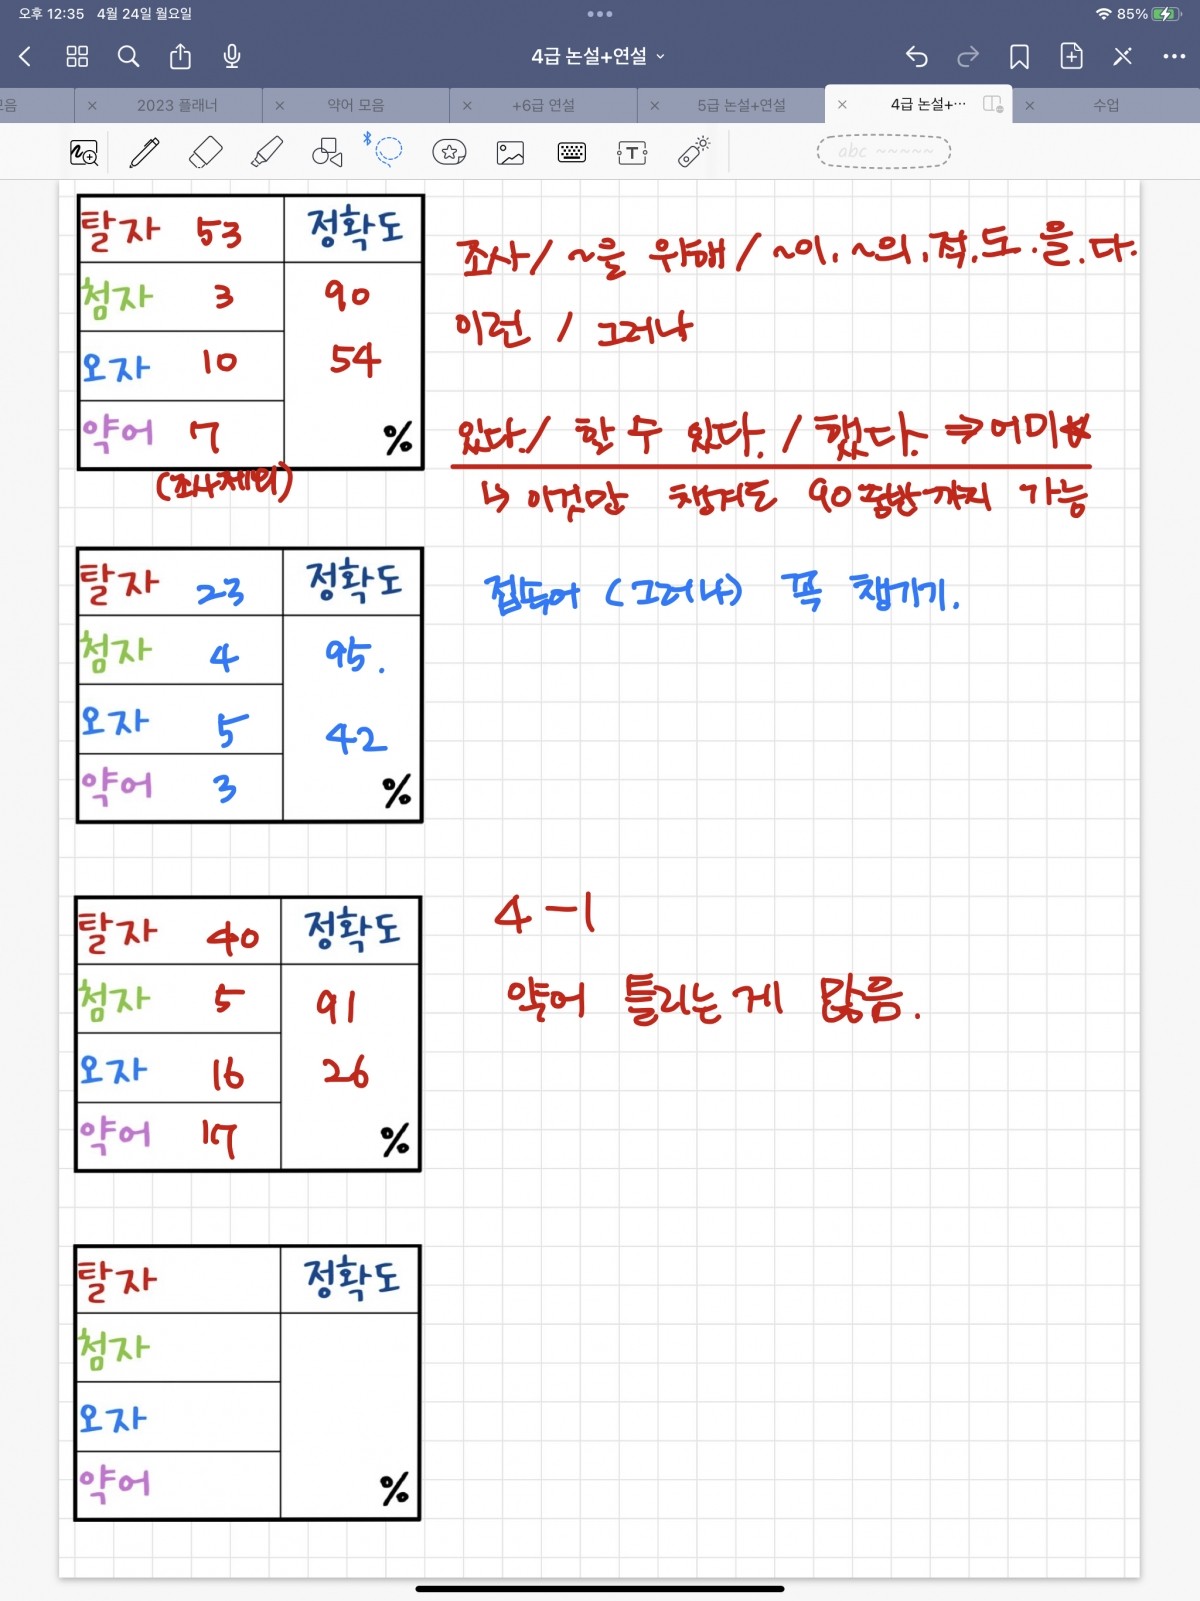 오후 12:35 4월 24일 월요일
85%
4급 논설+연설
모음
2023 플래너
약어 모음
+6급 연설
5급 논설+연설
4급 논설+…
수업
abc ~~~~~
탈자 53 정확도
첨자 3 90
오자 10 54
약어 7 %
(조사제외)
조사/ ~을 위해/ ~이, ~의, 적, 도. 을. 다.
이런 / 그러나
있다./ 할 수 있다. / 했다. ⇒ 어미★
↳ 이것만 챙겨도 90중반까지 가능
탈자 23 정확도
첨자 4 95.
오자 5 42
약어 3 %
접속어 (그러나) 꼭 챙기기.
탈자 40 정확도
첨자 5 91
오자 16 26
약어 17 %
4-1
약어 틀리는 게 많음.
탈자 정확도
첨자
오자
약어 %